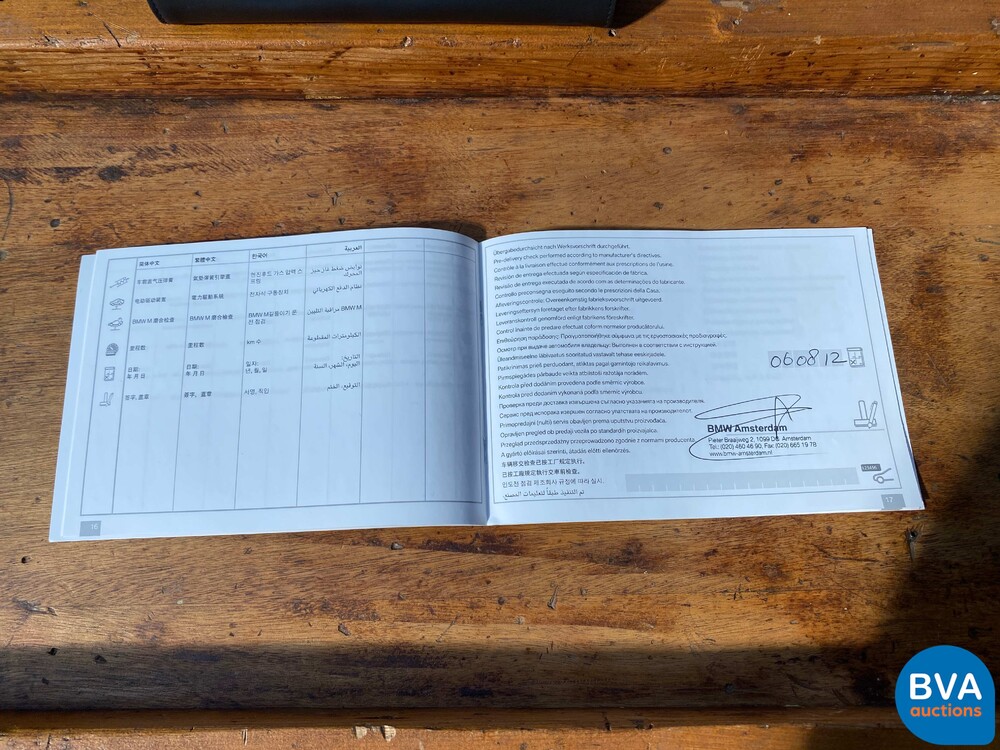 简体中文 繁體中文 한국어 العربية
车箱盖气压弹簧
电动驱动装置 電力驅動系統 전자식 구동장치 نظام الدفع الكهربائي
BMW M 磨合检查 BMW M 磨合檢查 BMW M길들이기 운전 점검 BMW M مراقبة التليين
里程数: 里程數: km 수 الكيلومترات المقطوعة
日期: 日期: 일자: التاريخ:
年 月 日 年 月 日 년, 월, 일 اليوم، الشهر، السنة
签字, 盖章 簽字, 蓋章 서명, 직인 التوقيع، الختم
16
Übergabedurchsicht nach Werksvorschrift durchgeführt.
Pre-delivery check performed according to manufacturer's directives.
Contrôle à la livraison effectué conformément aux prescriptions de l'usine.
Revisión de entrega efectuada según especificación de fábrica.
Revisão de entrega executada de acordo com as determinações do fabricante.
Controllo preconsegna eseguito secondo le prescrizioni della Casa.
Afleveringscontrole: Overeenkomstig fabrieksvoorschrift uitgevoerd.
Leveringseftersyn foretaget efter fabrikkens forskrifter.
Leveranskontroll genomförd enligt fabrikens föreskrifter.
Control înainte de predare efectuat coform normelor producătorului.
Επιθεώρηση παράδοσης: Πραγματοποιήθηκε σύμφωνα με τις εργοστασιακές προδιαγραφές.
Осмотр при выдаче автомобиля владельцу: Выполнен в соответствии с инструкцией.
Üleandmiseelne läbivaatus sooritatud vastavalt tehase eeskirjadele.
Patikrinimas prieš perduodant, atliktas pagal gamintojo reikalavimus.
Pirmspiegādes pārbaude veikta atbilstoši ražotāja norādēm.
Kontrola před dodáním provedena podle směrnic výrobce.
Kontrola pred dodaním vykonaná podľa smerníc výrobcu.
Проверка преди доставка извършена съгласно указанията на производителя.
Сервис пред испорака извршен согласно упатствата на производителот.
Primopredajni (nulti) servis obavljen prema uputstvu proizvođača.
Opravljen pregled ob predaji vozila po standardih proizvajalca.
Przegląd przedsprzedażny przeprowadzono zgodnie z normami producenta.
A gyártó előírásai szerinti, átadás előtti ellenőrzés.
车辆移交检查已按工厂规定执行。
已按工廠規定執行交車前檢查。
인도전 점검 제조회사 규정에 따라 실시.
تم التنفيذ طبقاً لتعليمات المصنع.
060812
BMW Amsterdam
Pieter Braaijweg 2, 1099 DK Amsterdam
Tel.: (020) 460 46 90, Fax: (020) 665 19 78
www.bmw-amsterdam.nl
17
BVA
auctions